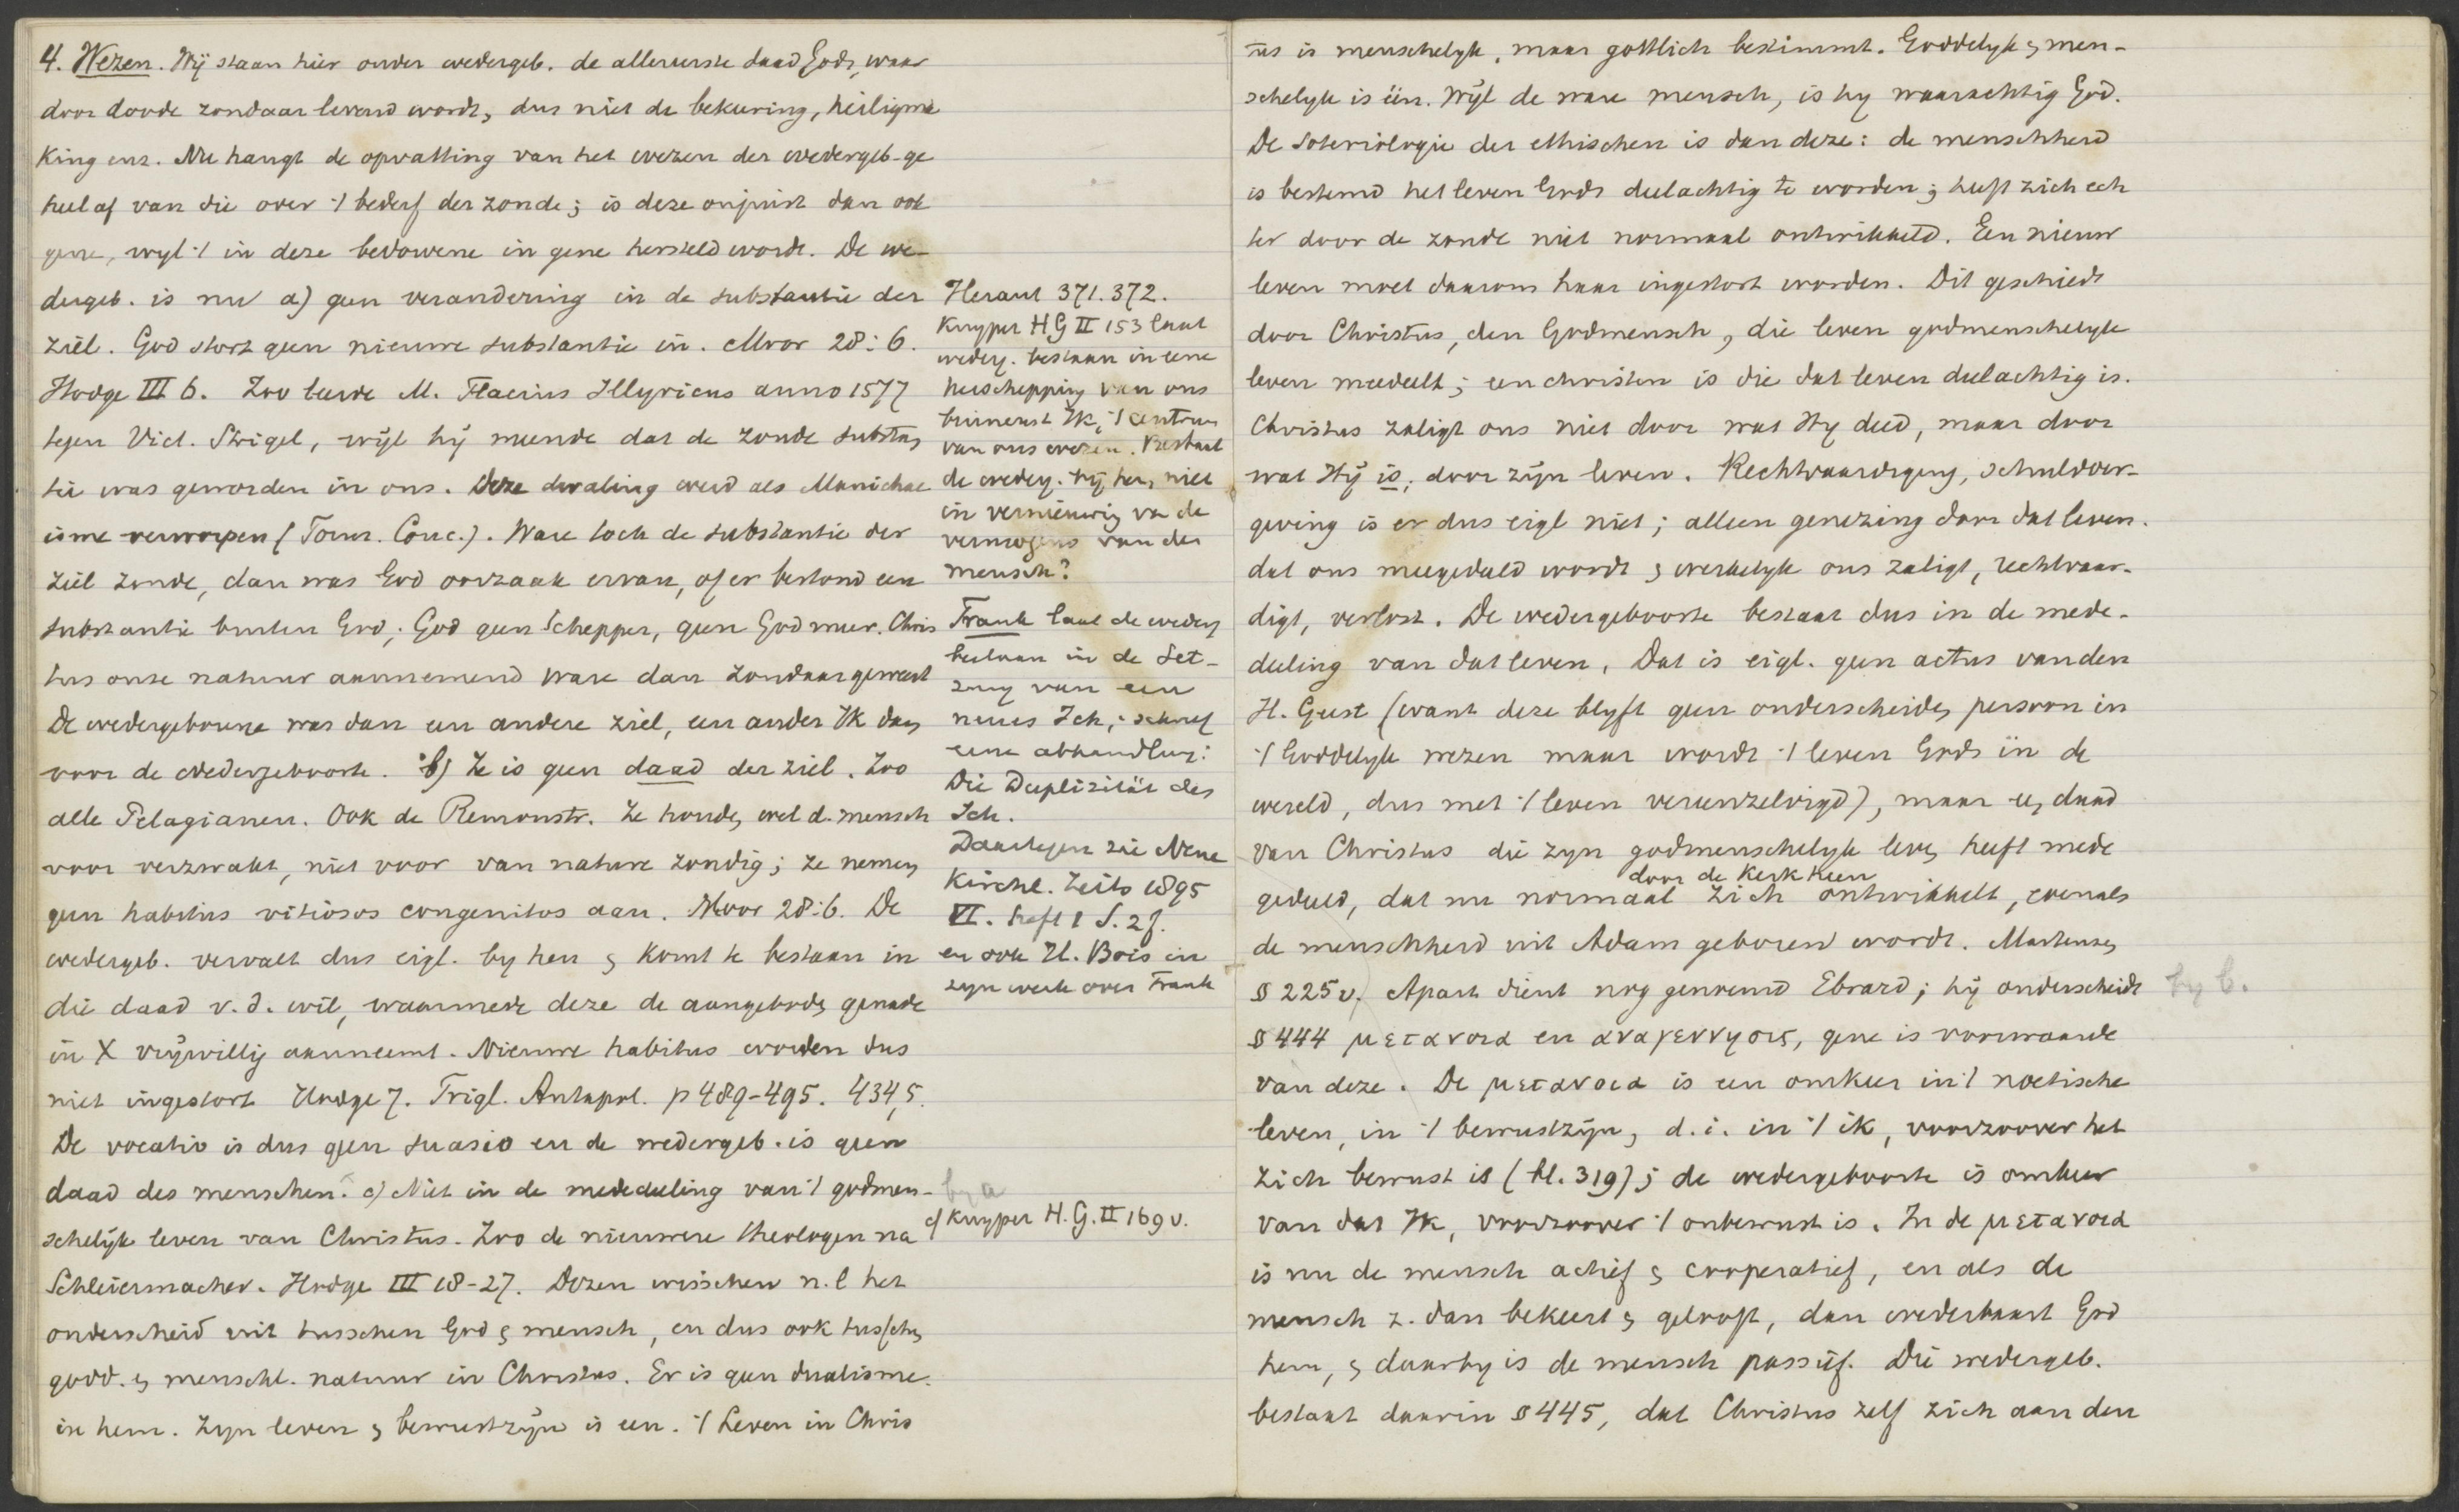 4. Wezen. Wij staan hier onder wedergeb. de allereerste daad Gods, waar
door doode zondaar levend wordt, dus niet de bekeering, heiligma
king enz. Nu hangt de opvatting van het wezen der wedergeb. ge
heel af van die over 't bederf der zonde; is deze onjuist dan ook
gene, wyl 't in deze bedorvene in gene hersteld wordt. De we-
dergeb. is nu a) geen verandering in de substantie der
ziel. God stort geen nieuwe substantie in. Moor 28:6.
Hodge III 6. Zoo leerde M. Flacius Illyricus anno 1577
tegen Vict. Strigel, wijl hij meende dat de zonde substan
tie was geworden in ons. Deze dwaling werd als Manichae
isme verworpen (Form. Conc.). Ware toch de substantie der
ziel zonde, dan was God oorzaak ervan, of er bestond een
substantie buiten God; God geen Schepper, geen God meer. Chris
tus onze natuur aannemend ware dan zondaar geweest
De wedergeborene was dan een andere ziel, een ander Ik dan
voor de wedergeboorte. b) Ze is geen daad der ziel. Zoo
alle Pelagianen. Ook de Remonstr. Ze houden wel d. mensch
voor verzwakt, niet voor van nature zondig; ze nemen
geen habitus vitiosos congenitos aan. Moor 28:6. De
wedergeb. vervalt dus eigl. by hen & komt te bestaan in
die daad v. d. wil, waarmede deze de aangeboden genade
in X vrijwillig aanneemt. Nieuwe habitus worden dus
niet ingestort Hodge 7. Trigl. Antapol. p 489-495. 434,5.
De vocatio is dus geen suasio en de wedergeb. is geen
daad des menschen. c) Niet in de mededeeling van 't godmen-
schelijk leven van Christus. Zoo de nieuwere theologen na
Schleiermacher. Hodge III 18-27. Dezen wisschen n.l het
onderscheid uit tusschen God & mensch, en dus ook tusschen
godd. & menschl. natuur in Christus. Er is geen dualisme
in hem. Zyn leven & bewustzijn is een. 't Leven in Chris
Heraut 371. 372.
Kuyper H G II 153 laat
wederg. bestaan in eene
herschepping van ons
binnenst Ik, 't centrum
van ons wezen. Bestaat
de wederg. bij hem niet
in vernieuwing van de
vermogens van den
mensch?
Frank laat de wederg
bestaan in de Set-
zung van een
neues Ich; schreef
eene abhandlung:
Die Duplizität des
Ich.
Daartegen zie Neue
Kirchl. Zeits 1895
VI. Heft 1 S. 27.
en ook H. Bois in
zijn werk over Frank
by a
c) Kuyper H. G. II 169 v.
us is menschelyk, maar gottlich bestimmt. Goddelyk & men-
schelyk is één. Wijl de ware mensch, is hy waarachtig God.
De Soteriologie der ethischen is dan deze: de menschheid
is bestemd het leven Gods deelachtig te worden; heeft zich ech
ter door de zonde niet normaal ontwikkeld. Een nieuw
leven moet daarom haar ingestort worden. Dit geschiedt
door Christus, den Godmensch, die leven godmenschelyk
leven meedeelt; een christen is die dat leven deelachtig is.
Christus zaligt ons niet door wat Hy deed, maar door
wat Hÿ is, door zijn leven. Rechtvaardiging, schuldver-
geving is er dus eigl niet; alleen genezing door dat leven.
dat ons meegedeeld wordt & werkelyk ons zaligt, rechtvaar-
digt, verlost. De wedergeboorte bestaat dus in de mede-
deeling van dat leven. Dat is eigl. geen actus van den
H. Geest (want deze blyft geen onderscheiden persoon in
't Goddelyk wezen maar wordt 't leven Gods in de
wereld, dus met 't leven vereenzelvigd), maar een daad
van Christus die zyn godmenschelyk leven heeft mede
door de Kerk heen
gedeeld, dat nu normaal zich ontwikkelt, evenals
de menschheid uit Adam geboren wordt. Martensen
§ 225 v. Apart dient nog genoemd Ebrard; hij onderscheidt
by b.
§ 444 μετανοια en αναγεννησις, gene is voorwaarde
van deze. De μετανοια is een omkeer in 't noetische
leven, in 't bewustzijn, d. i. in 't ik, voorzoover het
zich bewust is (bl. 319); de wedergeboorte is omkeer
van dat Ik, voorzoover 't onbewust is. In de μετανοια
is nu de mensch actief & cooperatief, en als de
mensch z. dan bekeert & gelooft, dan wederbaart God
hem, & daarby is de mensch passief. Die wedergeb.
bestaat daarin § 445, dat Christus zelf zich aan den